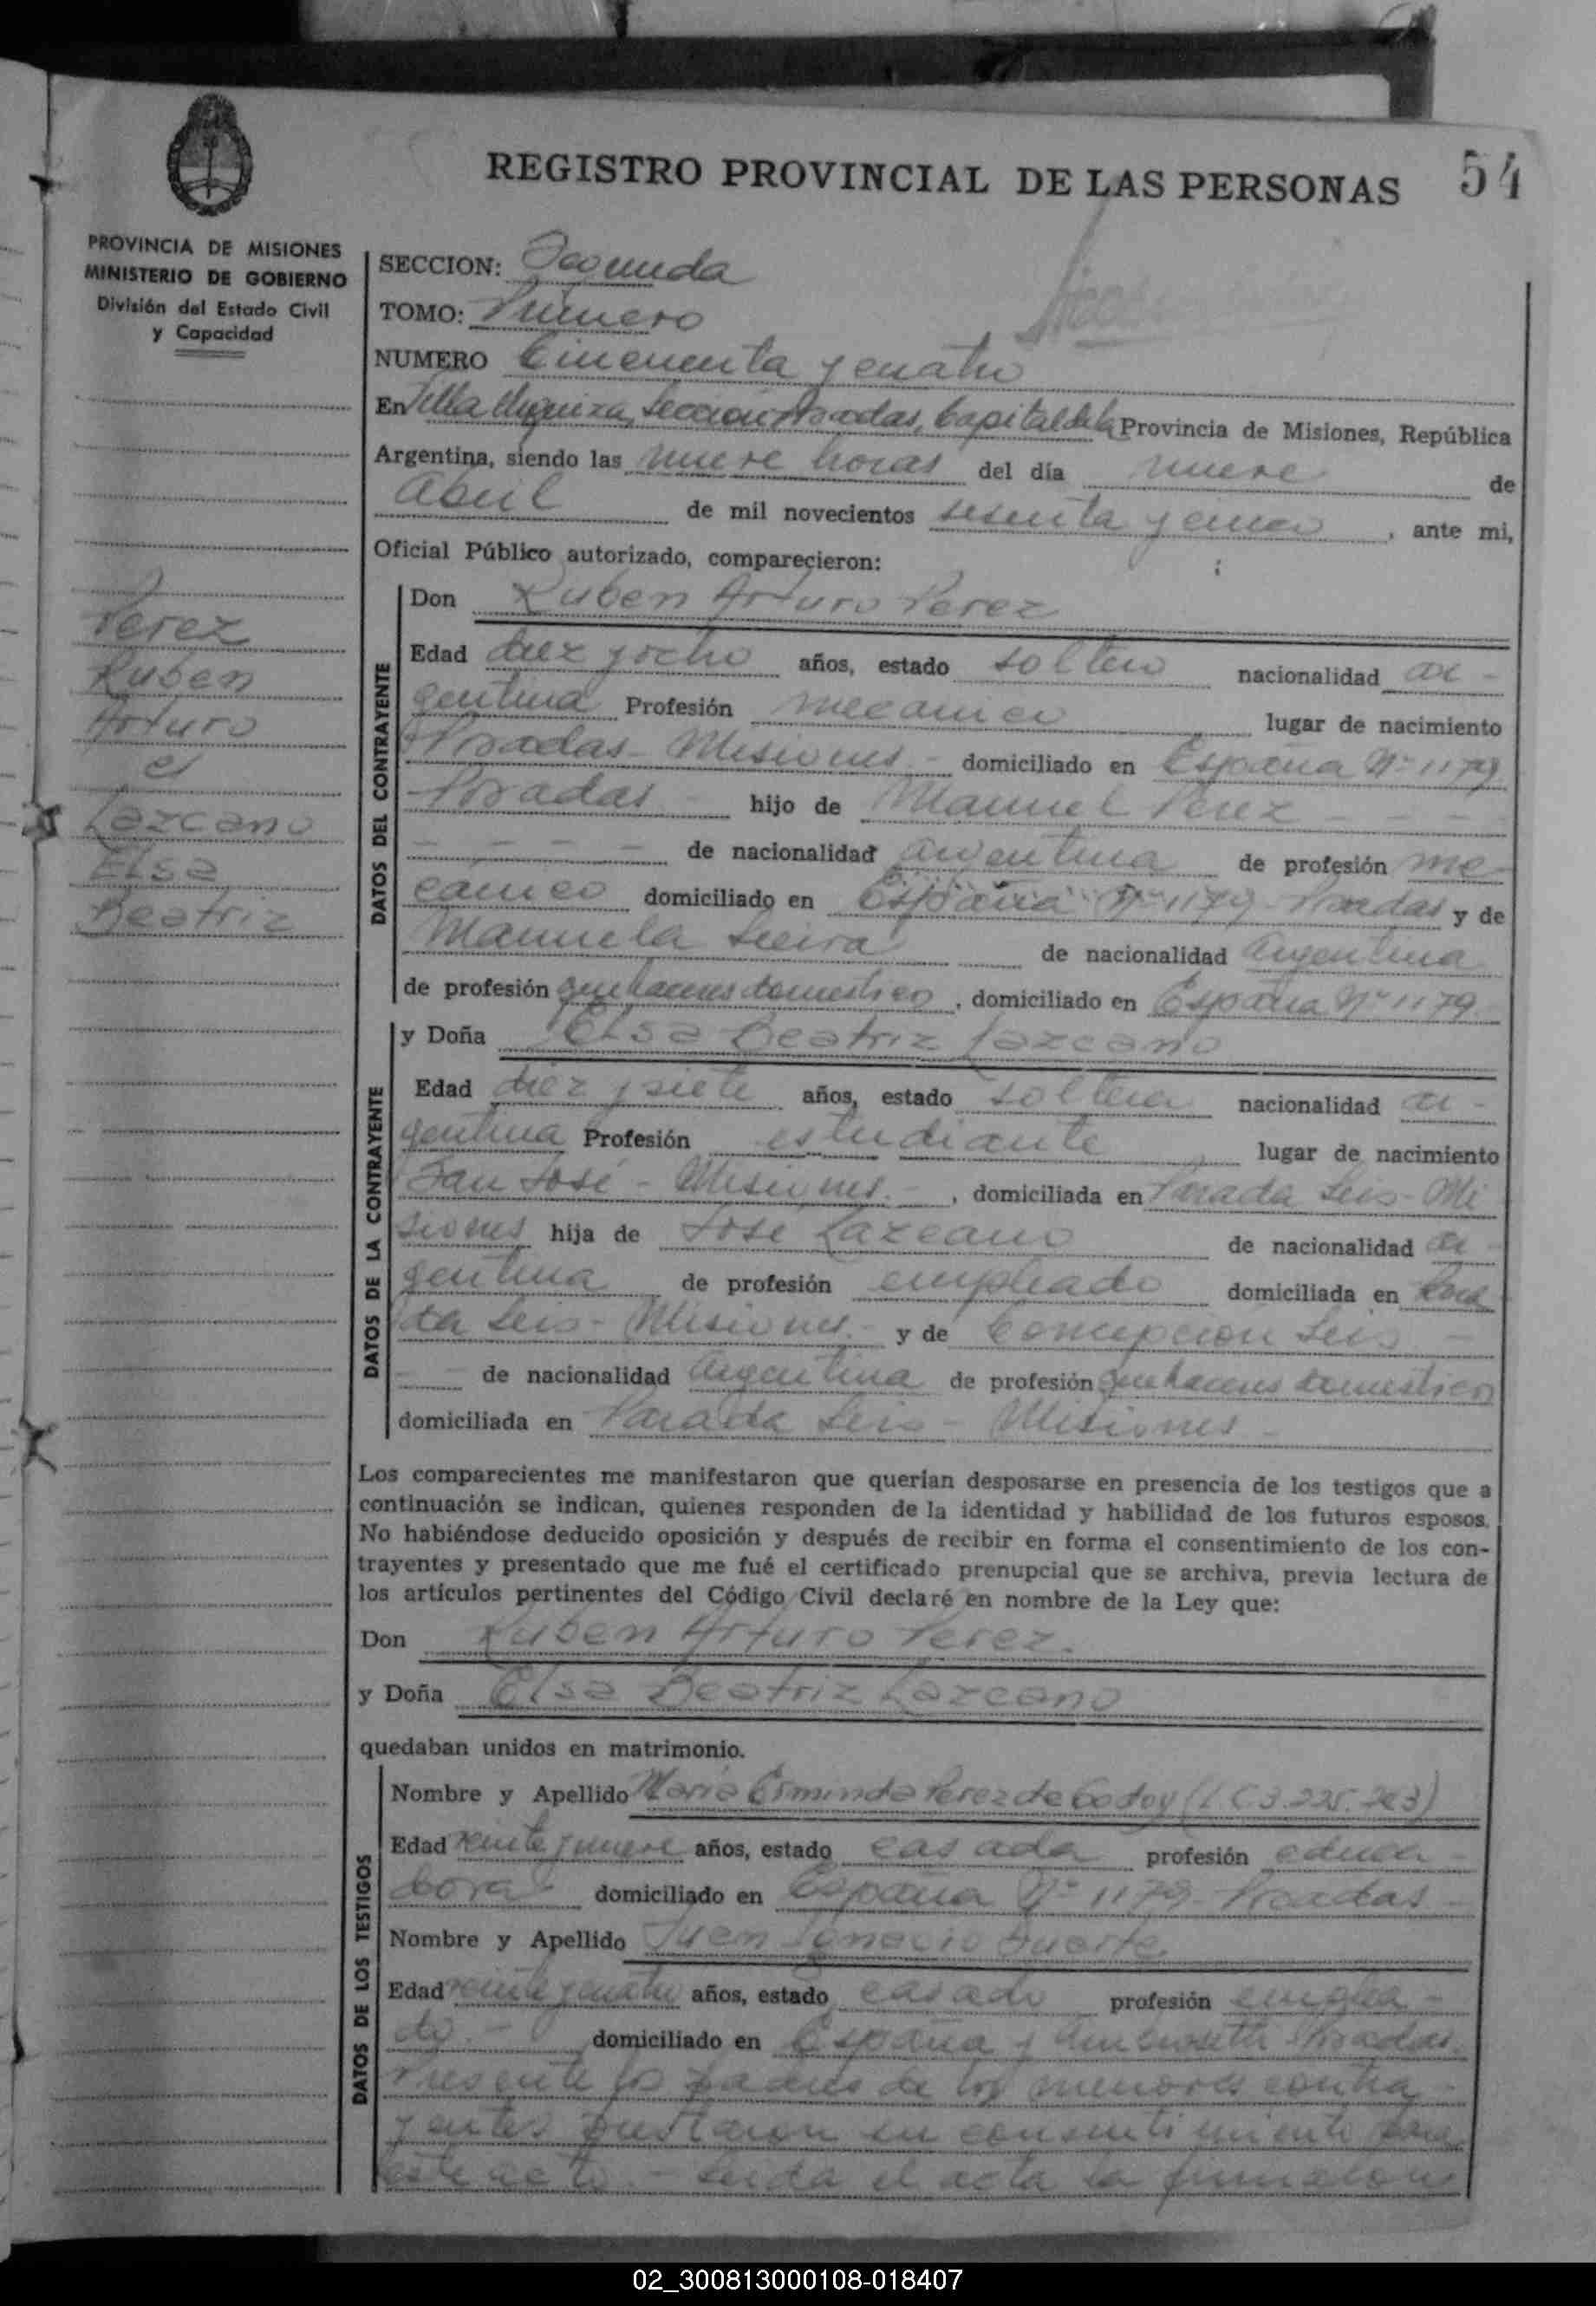 REGISTRO PROVINCIAL DE LAS PERSONAS 54
PROVINCIA DE MISIONES
MINISTERIO DE GOBIERNO
División del Estado Civil
y Capacidad
Perez
Ruben
Arturo
c/
Lazcano
Elsa
Beatriz
SECCION: Segunda
TOMO: Primero
NUMERO Cincuenta y cuatro
En Villa Urquiza, Sección Posadas, Capital de la Provincia de Misiones, República
Argentina, siendo las nueve horas del día nueve de
Abril de mil novecientos sesenta y cinco, ante mi,
Oficial Público autorizado, comparecieron:
DATOS DEL CONTRAYENTE
Don Ruben Arturo Perez
Edad diez y ocho años, estado soltero nacionalidad ar-
gentina Profesión mecanico lugar de nacimiento
Posadas - Misiones - domiciliado en España Nº 1179
Posadas - hijo de Manuel Perez - - - -
- - - - de nacionalidad argentina de profesión me-
canico domiciliado en España Nº 1179 - Posadas y de
Manuela de nacionalidad argentina
de profesión quehaceres domestico, domiciliado en España Nº 1179.
DATOS DE LA CONTRAYENTE
y Doña Elsa Beatriz Lazcano
Edad diez y siete años, estado soltera nacionalidad ar-
gentina Profesión estudiante lugar de nacimiento
San José - Misiones. -, domiciliada en Parada Leis - Mi
siones hija de José Lazcano de nacionalidad ar-
gentina de profesión empleado domiciliada en Para-
da Leis - Misiones. - y de Concepción Leis -
- de nacionalidad Argentina de profesión quehaceres domestico
domiciliada en Parada Leis - Misiones -
Los comparecientes me manifestaron que querían desposarse en presencia de los testigos que a
continuación se indican, quienes responden de la identidad y habilidad de los futuros esposos.
No habiéndose deducido oposición y después de recibir en forma el consentimiento de los con-
trayentes y presentado que me fué el certificado prenupcial que se archiva, previa lectura de
los artículos pertinentes del Código Civil declaré en nombre de la Ley que:
Don Ruben Arturo Perez.
y Doña Elsa Beatriz Lazcano
quedaban unidos en matrimonio.
DATOS DE LOS TESTIGOS
Nombre y Apellido Maria Erminda Perez de Godoy (L.C 3.225.263)
Edad veinte y nueve años, estado casada profesión educa-
dora domiciliado en España Nº 1179 - Posadas -
Nombre y Apellido Juan Ignacio Duarte
Edad veinte y cuatro años, estado casado profesión emplea-
do. - domiciliado en España y Posadas.
Presente los padres de los menores contra-
yentes prestaron su consentimiento para
este acto. - Leida el acta la firmaron
02_300813000108-018407